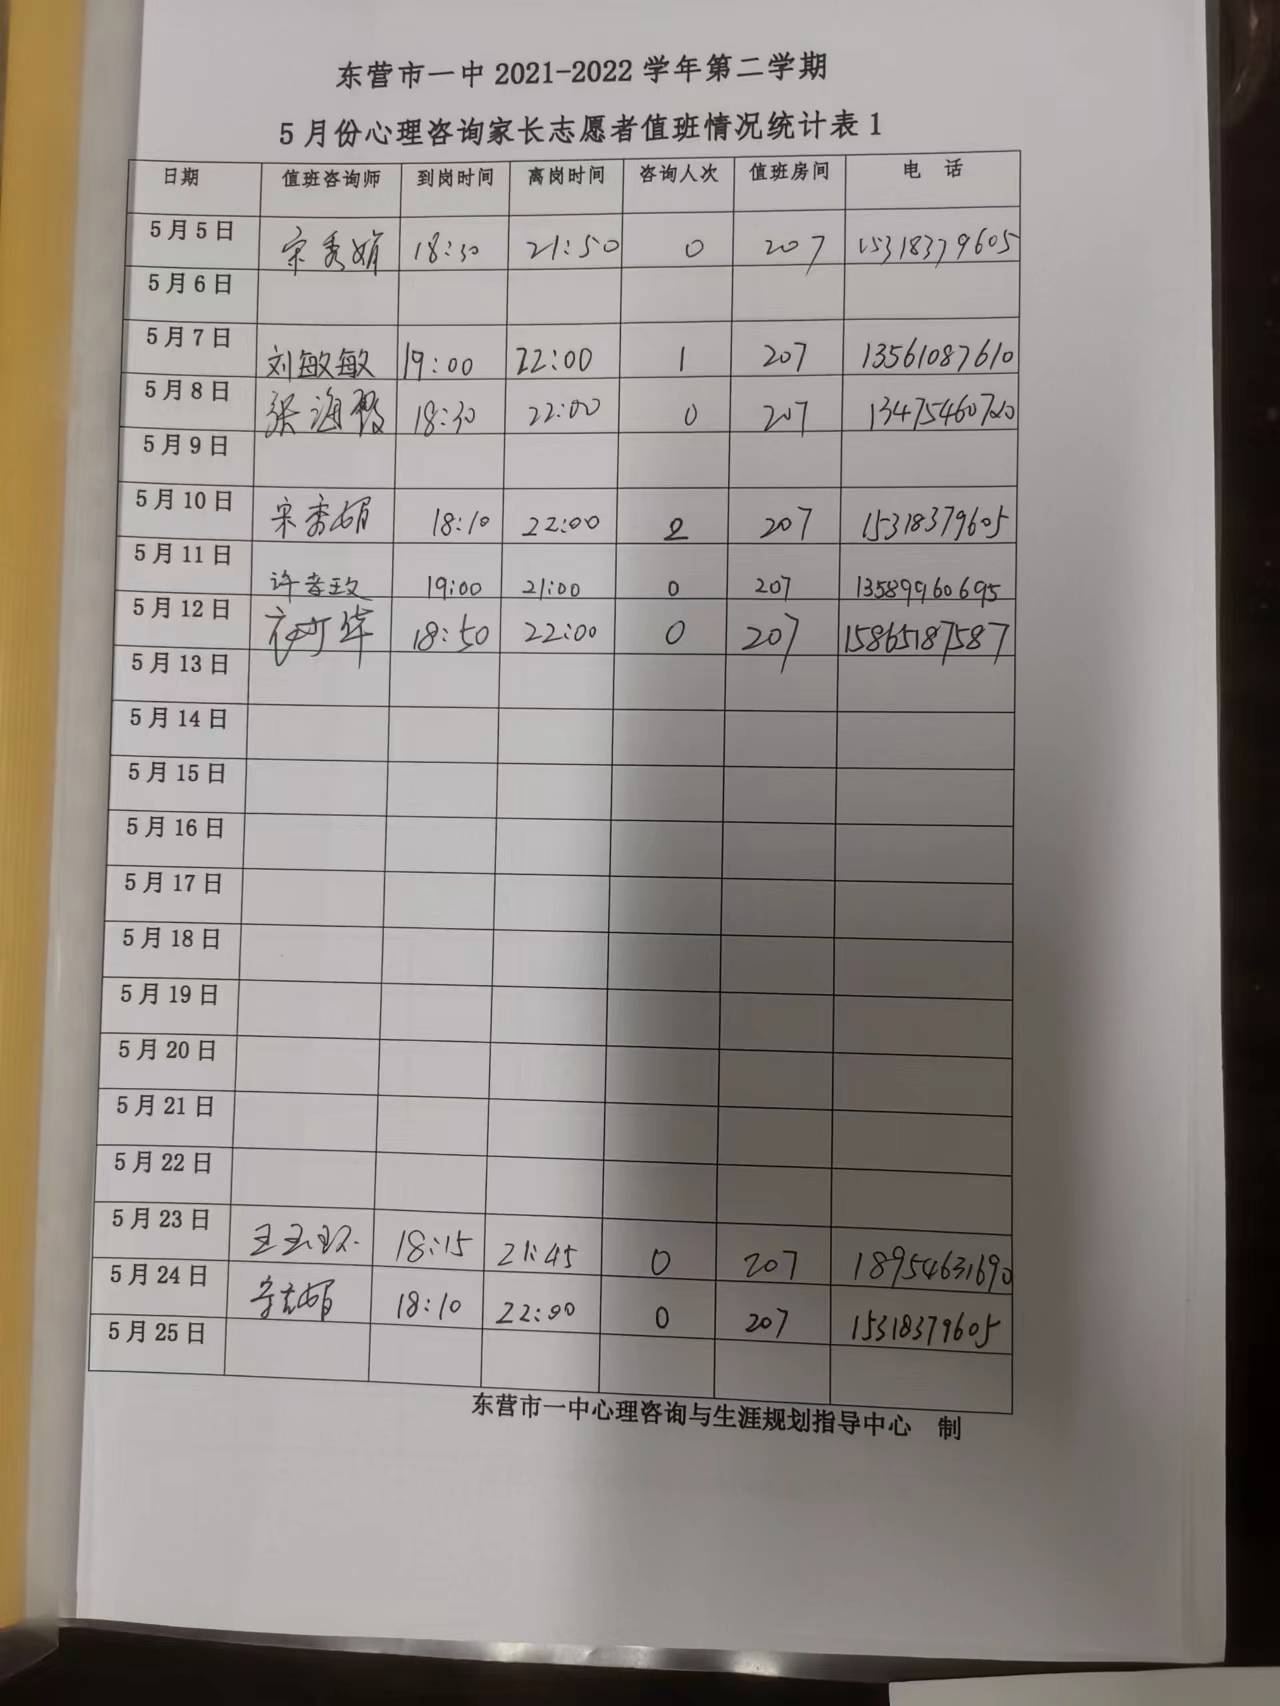 东营市一中 2021-2022 学年第二学期
5 月份心理咨询家长志愿者值班情况统计表 1
日期 值班咨询师 到岗时间 离岗时间 咨询人次 值班房间 电 话
5 月 5 日 宋秀娟 18:30 21:50 0 207 15318379605
5 月 6 日
5 月 7 日 刘敏敏 19:00 22:00 1 207 13561087610
5 月 8 日 张海霞 18:30 22:00 0 207 13475460720
5 月 9 日
5 月 10 日 宋秀娟 18:10 22:00 2 207 15318379605
5 月 11 日 许孝玫 19:00 21:00 0 207 13589960695
5 月 12 日 18:50 22:00 0 207 15865187587
5 月 13 日
5 月 14 日
5 月 15 日
5 月 16 日
5 月 17 日
5 月 18 日
5 月 19 日
5 月 20 日
5 月 21 日
5 月 22 日
5 月 23 日 18:15 21:45 0 207 18954631690
5 月 24 日 宋秀娟 18:10 22:00 0 207 15318379605
5 月 25 日
东营市一中心理咨询与生涯规划指导中心 制